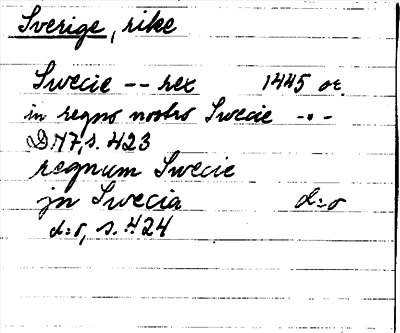 Sverige, rike
Swecie -- rex 1445 or.
in regno nostro Swecie -"-
DN 7, s. 423
regnum Swecie
jn Swecia d:o
d:o, s. 424